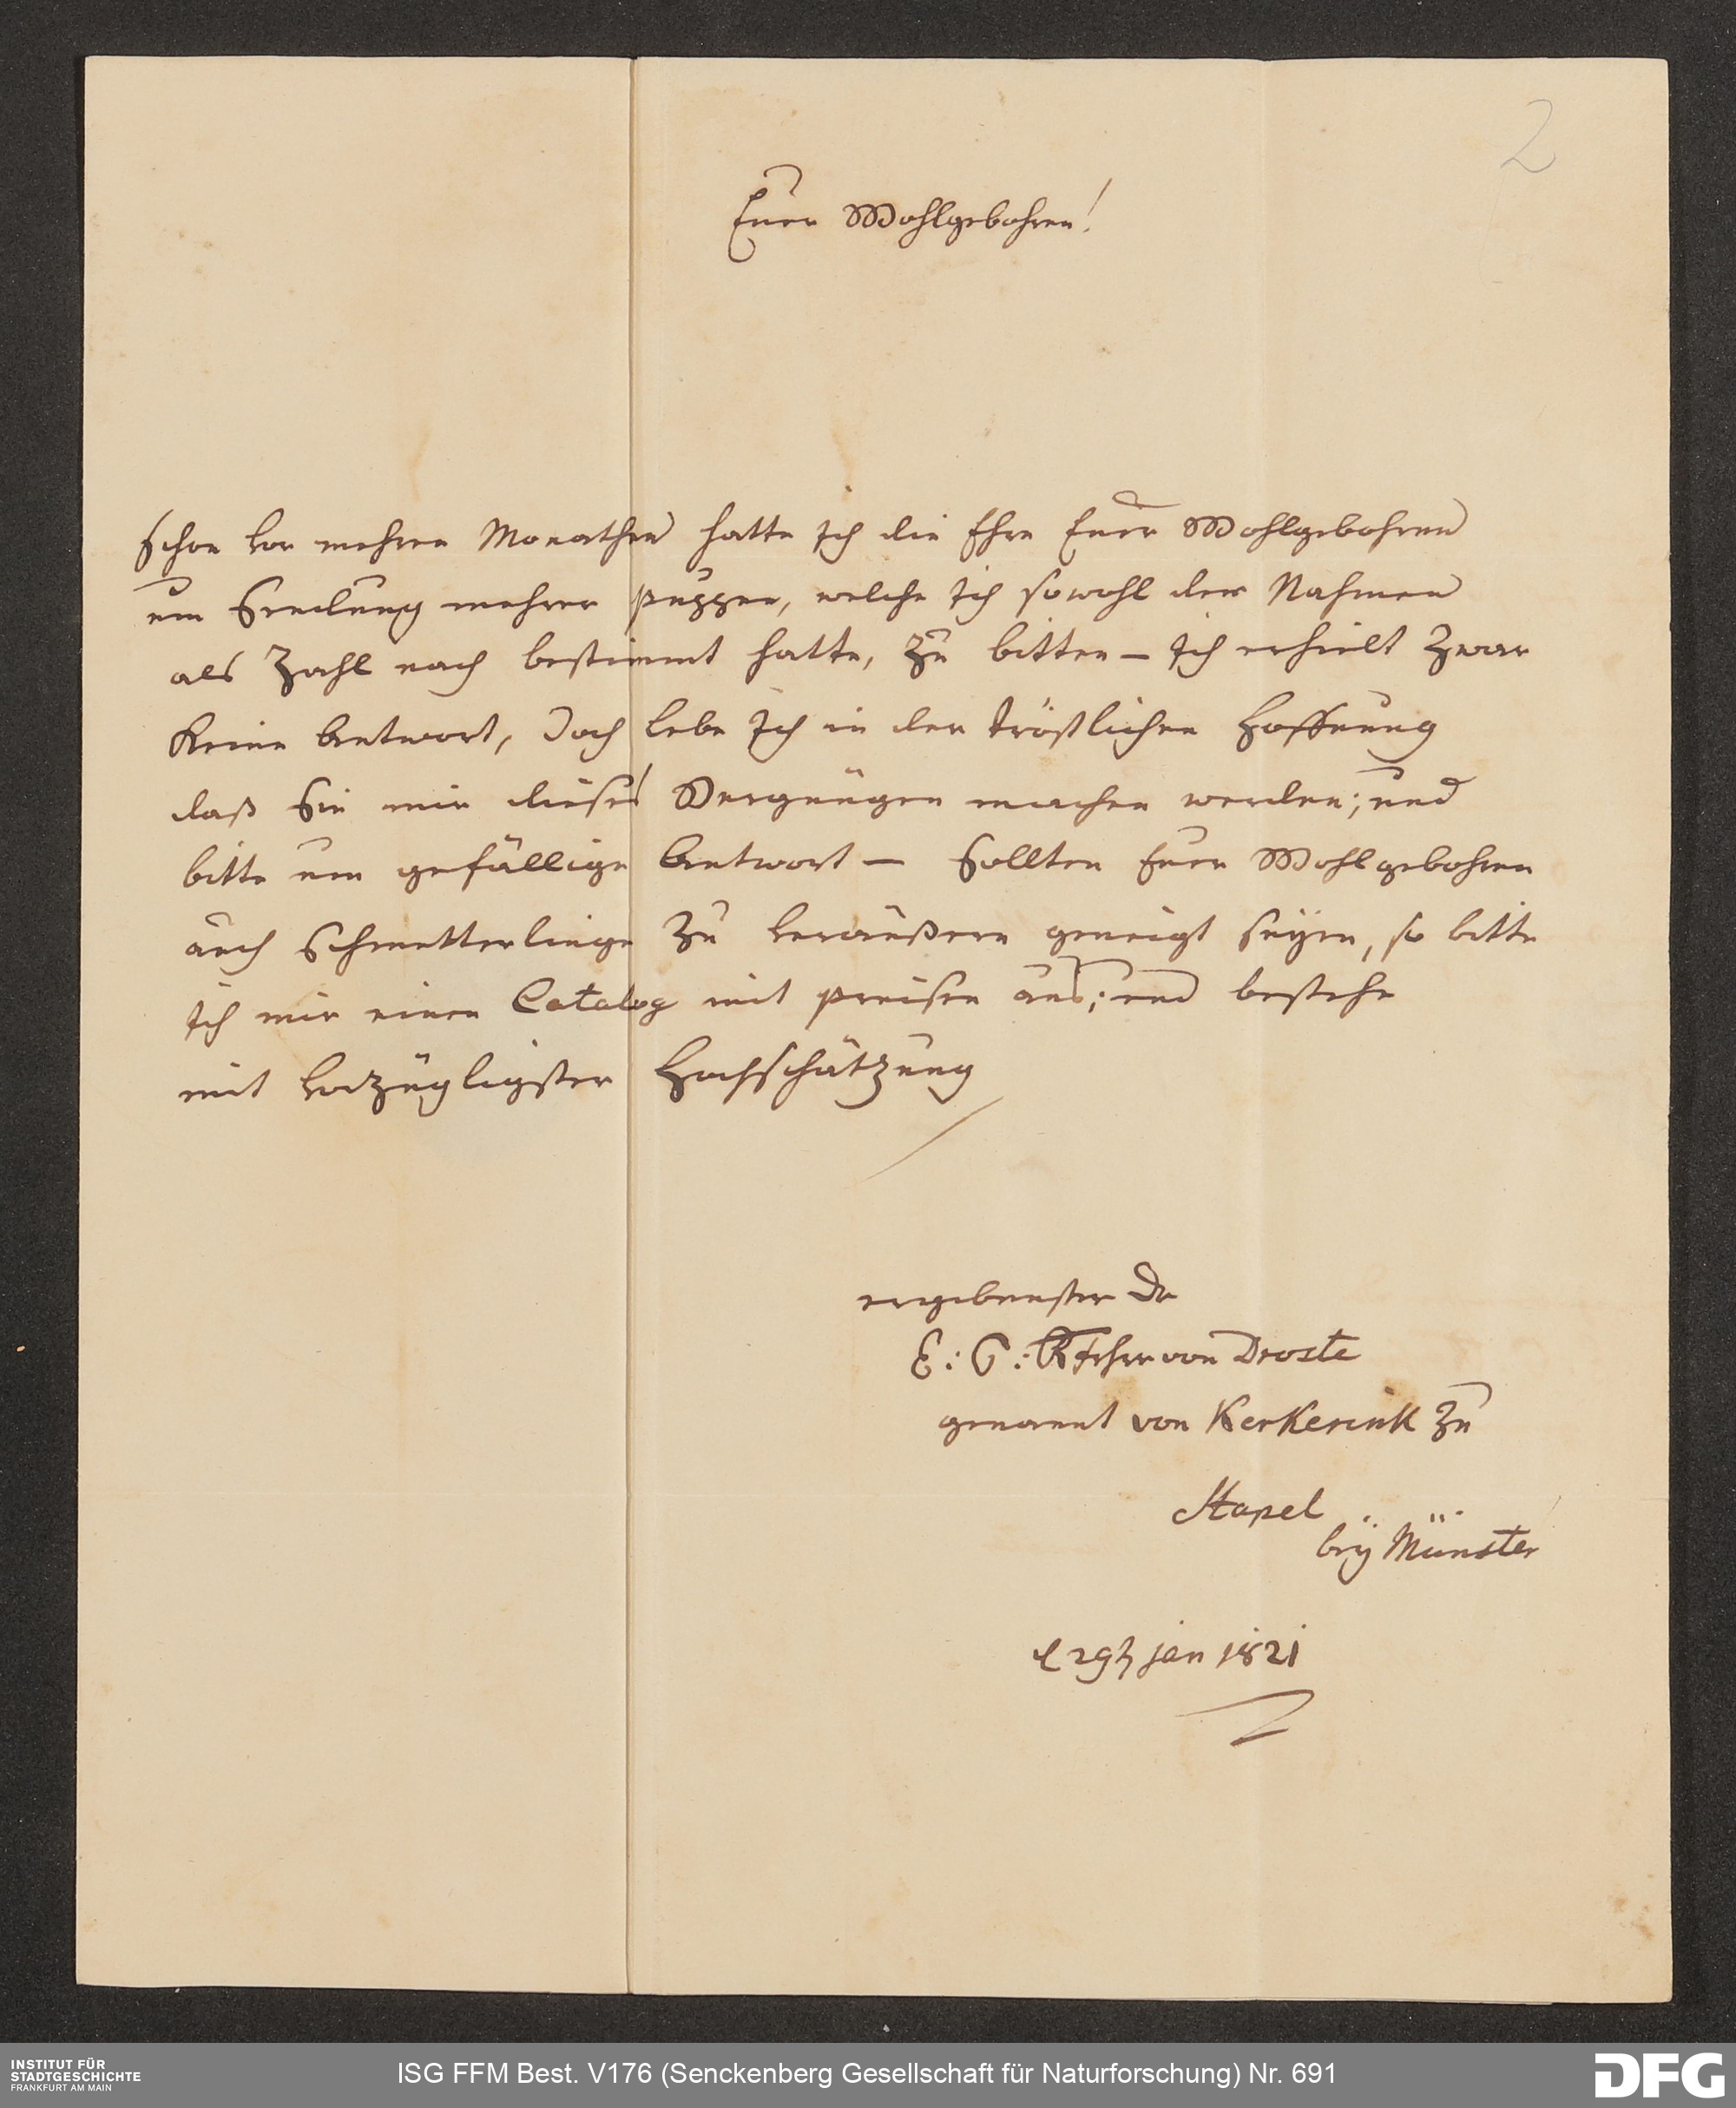 2
Euer Wohlgebohren!
Schon vor mehren Monathen hatte Ich die Ehre Euer Wohlgebohren
um Sendung mehrer puppen, welche Ich sowohl den Nahmen
als Zahl nach bestimmt hatte, zu bitten – Ich erhielt zwar
keine Antwort, Doch lebe Ich in der tröstlichen Hoffnung
daß Sie mir dieses Vergnügen machen werden; und
bitte um gefällige Antwort – Sollten Euer Wohlgebohren
auch Schmetterlinge zu veräußern geneigt seÿen, so bitte
Ich mir einen Catalog mit preisen aus; und bestehe
mit vorzügligster Hochschätzung
ergebenster Dr
E: C: Frhr von Droste
genannt von Kerkerink zu
Stapel
beÿ Münster
d 29t jan 1821
INSTITUT FÜR
STADTGESCHICHTE
FRANKFURT AM MAIN
ISG FFM Best. V176 (Senckenberg Gesellschaft für Naturforschung) Nr. 691
DFG